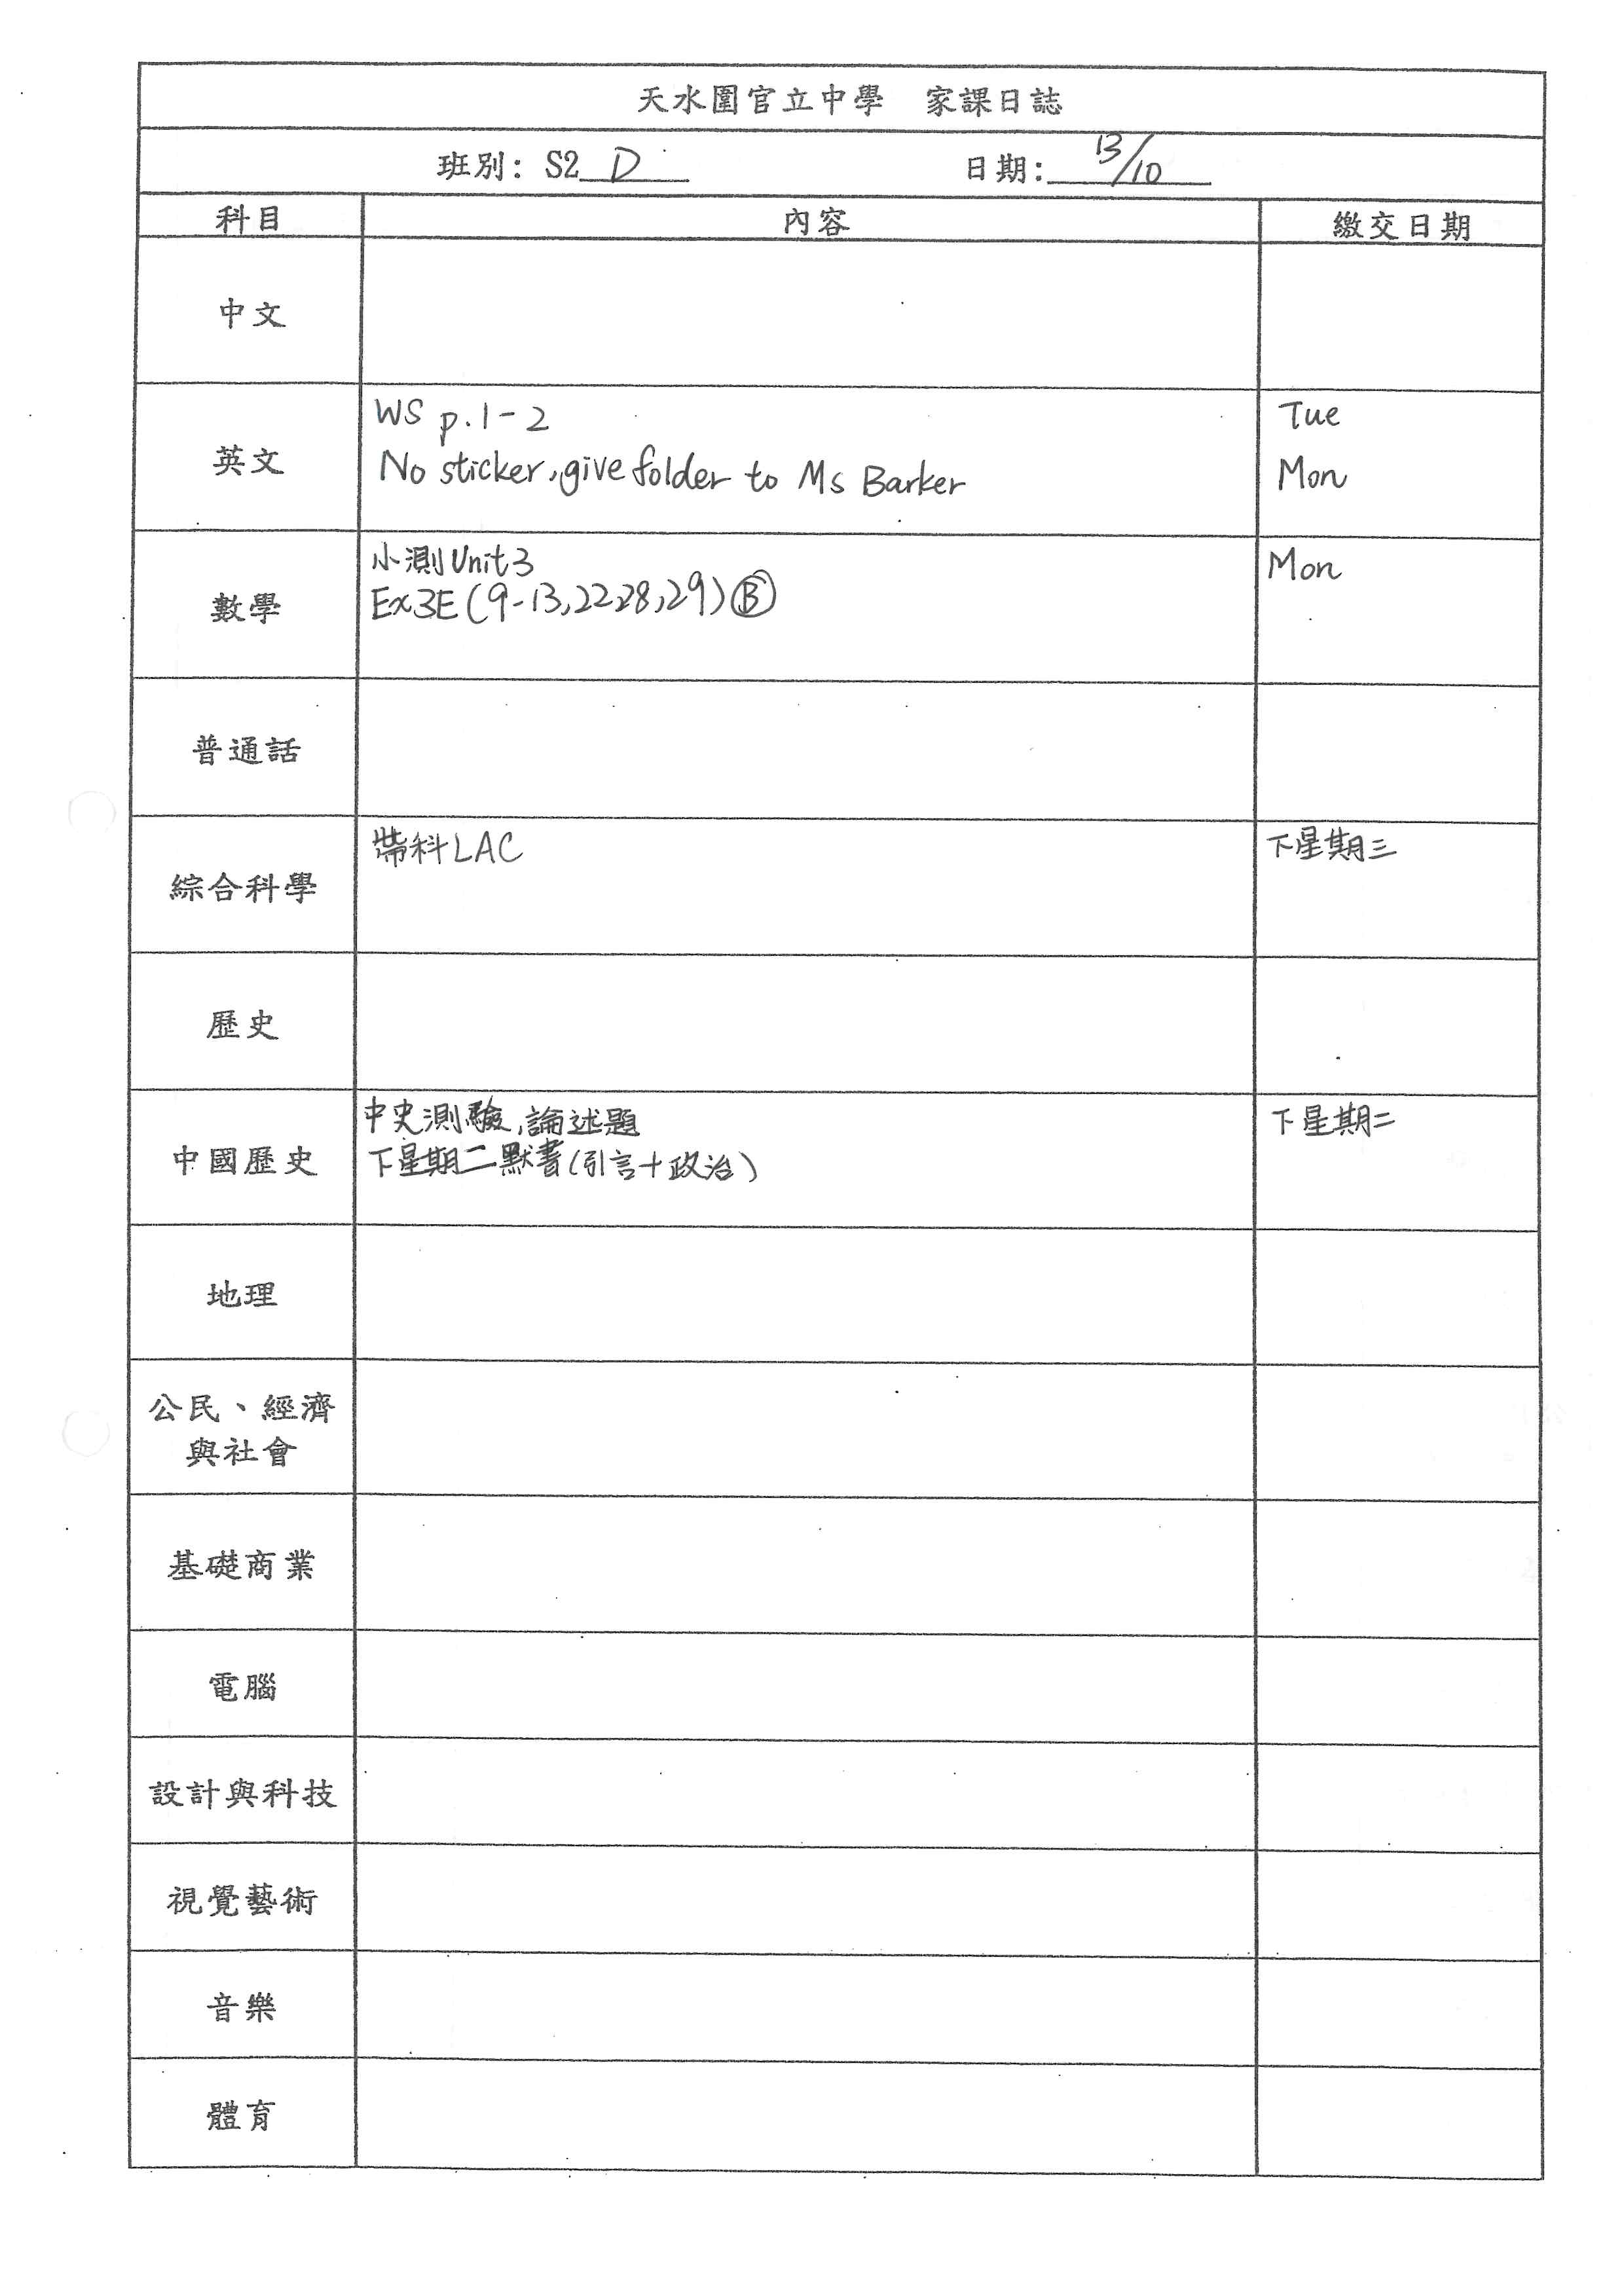 天水圍官立中學 家課日誌
班別: S2 D 日期: 13/10
科目 內容 繳交日期
中文
英文
WS p.1-2 Tue
No sticker, give folder to Ms Barker Mon
數學
小測 Unit 3 Mon
Ex3E (9-13,22,28,29) Ⓑ
普通話
綜合科學
帶科LAC 下星期三
歷史
中國歷史
中史測驗,論述題 下星期二
下星期二默書(引言+政治)
地理
公民、經濟
與社會
基礎商業
電腦
設計與科技
視覺藝術
音樂
體育